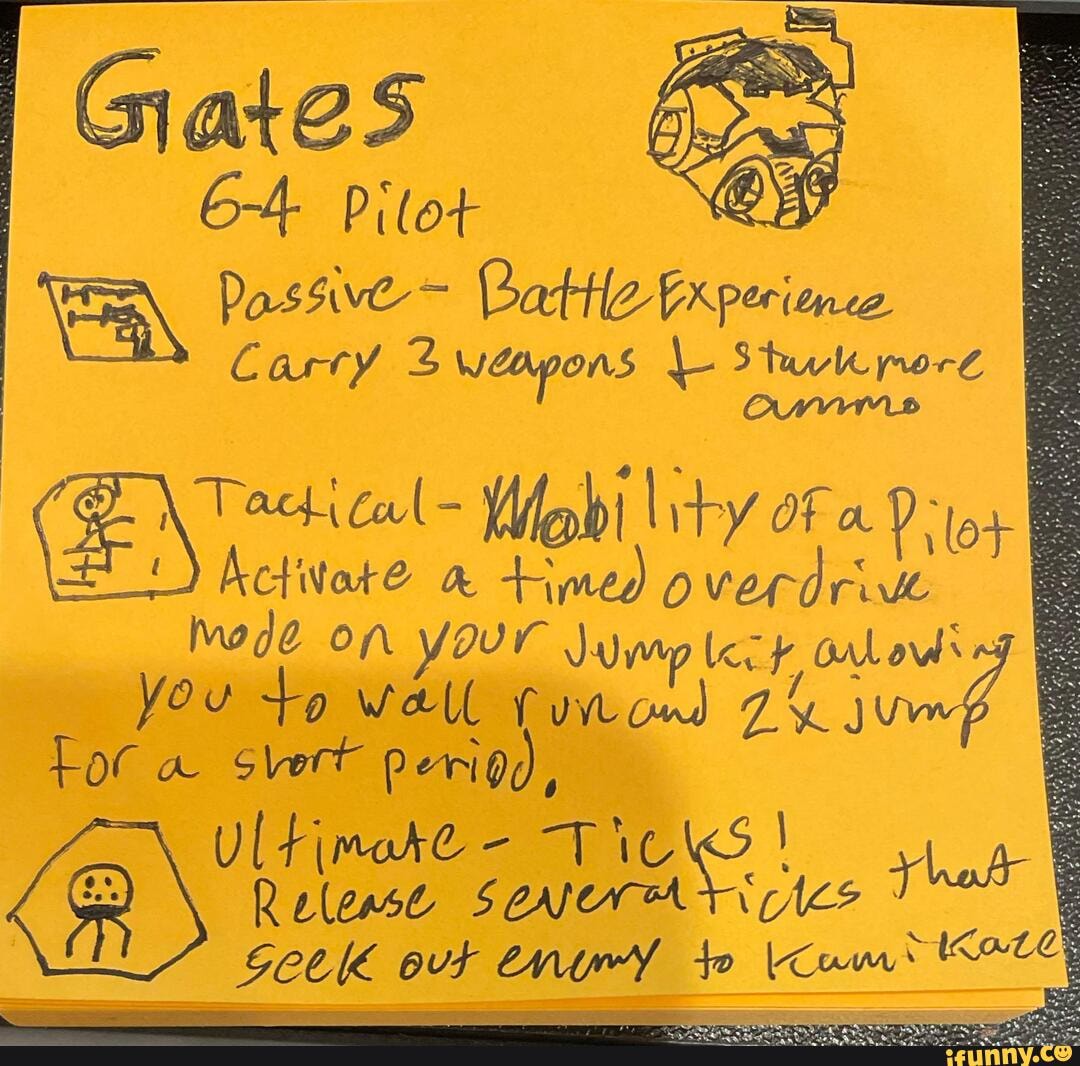 Gates
6-4 Pilot
Passive - Battle Experience
Carry 3 weapons & stack more
ammo
Tactical - Mobility of a Pilot
Activate a timed overdrive
mode on your Jump kit, allowing
you to wall run and 2x jump
for a short period.
Ultimate - Ticks!
Release several ticks that
seek out enemy to Kamikaze
ifunny.co